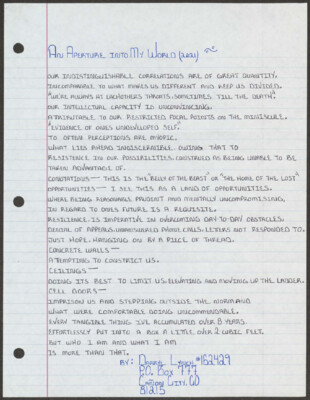 AN APERTURE INTO MY WORLD (2021)
OUR INDISTINGUISHABLE CORRELATIONS ARE OF GREAT QUANTITY.
INCOMPARABLE TO WHAT MAKES US DIFFERENT AND KEEP US DIVIDED.
"WE'RE ALWAYS AT EACHOTHERS THROATS, SOMETIMES TILL THE DEATH"
OUR INTELLECTUAL CAPACITY IS UNCONVINCING.
ATTRIBUTABLE TO OUR RESTRICTED FOCAL POINTS ON THE MINISCULE.
"EVIDENCE OF ONES UNDEVELOPED SELF"
TO OFTEN PERCEPTIONS ARE MYOPIC.
WHAT LIES AHEAD INDISCERNIBLE. OWING THAT TO
RESISTENCE IN OUR POSSIBILITIES. CONSTRUED AS BEING UNABLE TO BE
TAKEN ADVANTAGE OF.
CONNOTATIONS— THIS IS THE "BELLY OF THE BEAST" OR "THE HOME OF THE LOST"
OPPORTUNITIES— I SEE THIS AS A LAND OF OPPORTUNITIES.
WHERE BEING REASONABLE, PRUDENT AND MENTALLY UNCOMPROMISING,
IN REGARD TO ONES FUTURE IS A REQUISITE.
RESILIENCE IS IMPERATIVE IN OVERCOMING DAY-TO-DAY OBSTACLES.
DENIAL OF APPEALS. UNANSWERED PHONE CALLS. LETTERS NOT RESPONDED TO.
JUST HOPE. HANGING ON BY A PIECE OF THREAD.
CONCRETE WALLS—
ATTEMPTING TO CONSTRICT US.
CEILINGS—
DOING ITS BEST TO LIMIT US. ELEVATING AND MOVING UP THE LADDER.
CELL DOORS—
IMPRISON US AND STEPPING OUTSIDE THE NORM AND
WHAT WERE COMFORTABLE DOING UNCOMMENDABLE.
EVERY TANGIBLE THING I'VE ACCUMULATED OVER 8 YEARS
EFFORTLESSLY PUT INTO A BOX A LITTLE OVER 2 CUBIC FEET.
BUT WHO I AM AND WHAT I AM
IS MORE THAN THAT.
BY: #162429
P.O. BOX 777
CAÑON CITY, CO
81215